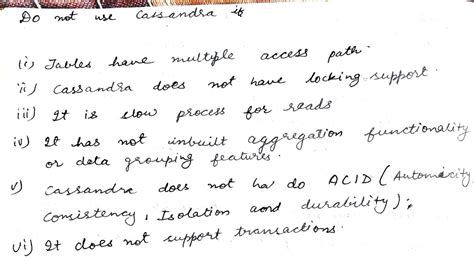 Do not use Cassandra if
(i) Tables have multiple access path.
ii) Cassandra does not have locking support.
iii) It is slow process for reads
iv) It has not inbuilt aggregation functionality
or data grouping features.
v) Cassandra does not ha do ACID (Automicity
Consistency, Isolation and durability);
vi) It does not support transactions.